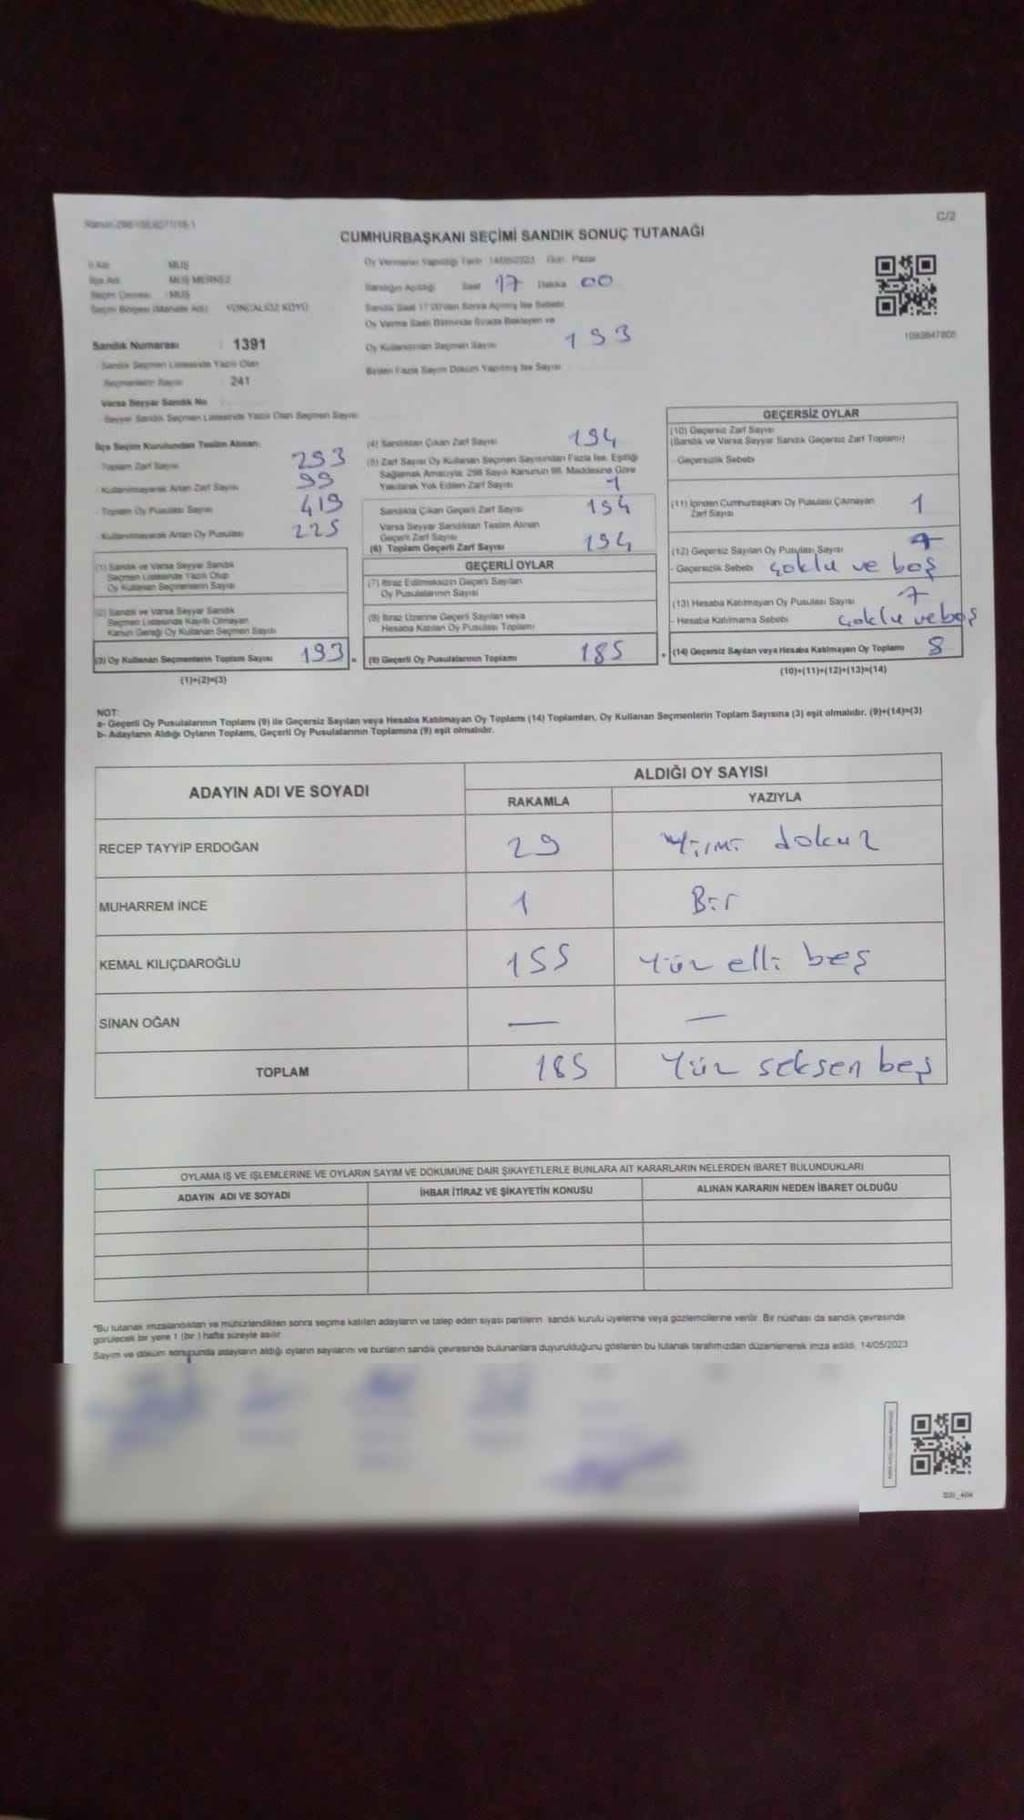 C/2
CUMHURBAŞKANI SEÇİMİ SANDIK SONUÇ TUTANAĞI
İl Adı MUŞ
İlçe Adı MUŞ MERKEZ
Seçim Çevresi MUŞ
Seçim Bölgesi (Mahalle Adı)
Oy Vermenin Yapıldığı Tarih 14/05/2023 Gün Pazar
Sandığın Açıldığı Saat 17 Dakika 00
Sandık Saat 17:00'den Sonra Açılmış İse Sebebi
Sandık Numarası 1391
Oy Kullandırılan Seçmen Sayısı 193
Sandık Seçmen Listesinde Yazılı Olan
Seçmenlerin Sayısı 241
Birden Fazla Sayım Döküm Yapılmış İse Sayısı
Varsa Seyyar Sandık No
Seyyar Sandık Seçmen Listesinde Yazılı Olan Seçmen Sayısı
İlçe Seçim Kurulundan Teslim Alınan:
Toplam Zarf Sayısı 293
Kullanılmayarak Artan Zarf Sayısı 99
Toplam Oy Pusulası Sayısı 419
Kullanılmayarak Artan Oy Pusulası 225
(1) Sandık ve Varsa Seyyar Sandık
Seçmen Listesinde Yazılı Olup
Oy Kullanan Seçmenlerin Sayısı
(2) Sandık ve Varsa Seyyar Sandık
Seçmen Listesinde Kayıtlı Olmayan
Kanun Gereği Oy Kullanan Seçmen Sayısı
(3) Oy Kullanan Seçmenlerin Toplam Sayısı 193 =
(1)+(2)=(3)
(4) Sandıktan Çıkan Zarf Sayısı 194
(5) Zarf Sayısı Oy Kullanan Seçmen Sayısından Fazla İse, Eşitliği
Sağlamak Amacıyla; 298 Sayılı Kanunun 98. Maddesine Göre
Yakılarak Yok Edilen Zarf Sayısı 1
Sandıkta Çıkan Geçerli Zarf Sayısı 194
Varsa Seyyar Sandıktan Teslim Alınan
Geçerli Zarf Sayısı
(6) Toplam Geçerli Zarf Sayısı 194
GEÇERLİ OYLAR
(7) İtiraz Edilmeksizin Geçerli Sayılan
Oy Pusulalarının Sayısı
(8) İtiraz Üzerine Geçerli Sayılan veya
Hesaba Katılan Oy Pusulası Toplamı
(9) Geçerli Oy Pusulalarının Toplamı 185 +
GEÇERSİZ OYLAR
(10) Geçersiz Zarf Sayısı
(Sandık ve Varsa Seyyar Sandık Geçersiz Zarf Toplamı)
Geçersizlik Sebebi
(11) İçinden Cumhurbaşkanı Oy Pusulası Çıkmayan
Zarf Sayısı 1
(12) Geçersiz Sayılan Oy Pusulası Sayısı
- Geçersizlik Sebebi çoklu ve boş
(13) Hesaba Katılmayan Oy Pusulası Sayısı 7
- Hesaba Katılmama Sebebi çoklu ve boş
(14) Geçersiz Sayılan veya Hesaba Katılmayan Oy Toplamı 8
(10)+(11)+(12)+(13)=(14)
NOT:
a- Geçerli Oy Pusulalarının Toplamı (9) ile Geçersiz Sayılan veya Hesaba Katılmayan Oy Toplamı (14) Toplamları, Oy Kullanan Seçmenlerin Toplam Sayısına (3) eşit olmalıdır. (9)+(14)=(3)
b- Adayların Aldığı Oyların Toplamı, Geçerli Oy Pusulalarının Toplamına (9) eşit olmalıdır.
ADAYIN ADI VE SOYADI ALDIĞI OY SAYISI
RAKAMLA YAZIYLA
RECEP TAYYİP ERDOĞAN 29 Yirmi dokuz
MUHARREM İNCE 1 Bir
KEMAL KILIÇDAROĞLU 155 Yüz elli beş
SİNAN OĞAN — —
TOPLAM 185 Yüz seksen beş
OYLAMA İŞ VE İŞLEMLERİNE VE OYLARIN SAYIM VE DÖKÜMÜNE DAİR ŞİKAYETLERLE BUNLARA AİT KARARLARIN NELERDEN İBARET BULUNDUKLARI
ADAYIN ADI VE SOYADI İHBAR İTİRAZ VE ŞİKAYETİN KONUSU ALINAN KARARIN NEDEN İBARET OLDUĞU
"Bu tutanak imzalandıktan ve mühürlendikten sonra seçime katılan adayların ve talep eden siyasi partilerin sandık kurulu üyelerine veya gözlemcilerine verilir. Bir nüshası da sandık çevresinde
görülecek bir yere 1 (bir ) hafta süreyle asılır
Sayım ve döküm sonucunda adayların aldığı oyların sayılarını ve bunların sandık çevresinde bulunanlara duyurulduğunu gösteren bu tutanak tarafımızdan düzenlenerek imza edildi. 14/05/2023